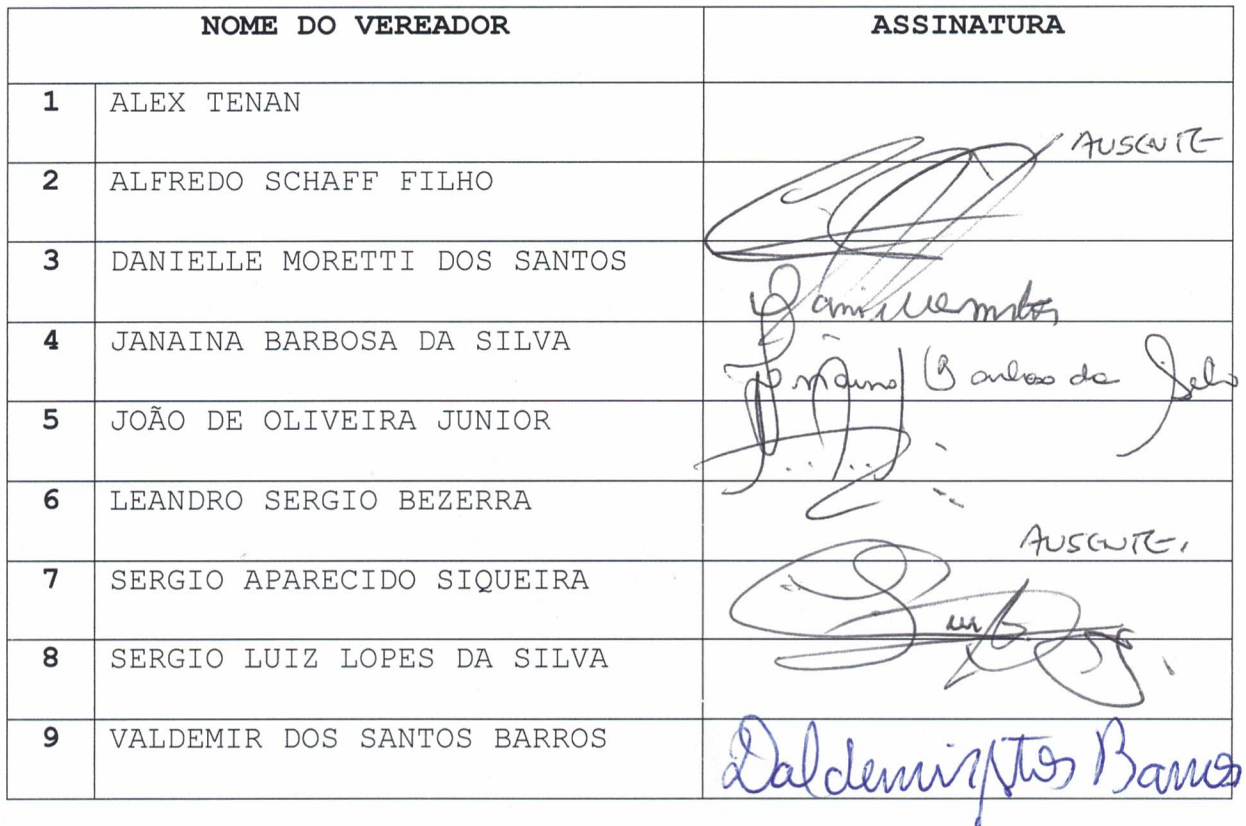 NOME DO VEREADOR ASSINATURA
1 ALEX TENAN AUSENTE
2 ALFREDO SCHAFF FILHO
3 DANIELLE MORETTI DOS SANTOS
4 JANAINA BARBOSA DA SILVA Barbosa da Silva
5 JOÃO DE OLIVEIRA JUNIOR
6 LEANDRO SERGIO BEZERRA AUSENTE.
7 SERGIO APARECIDO SIQUEIRA
8 SERGIO LUIZ LOPES DA SILVA
9 VALDEMIR DOS SANTOS BARROS Valdemir Stos Barros